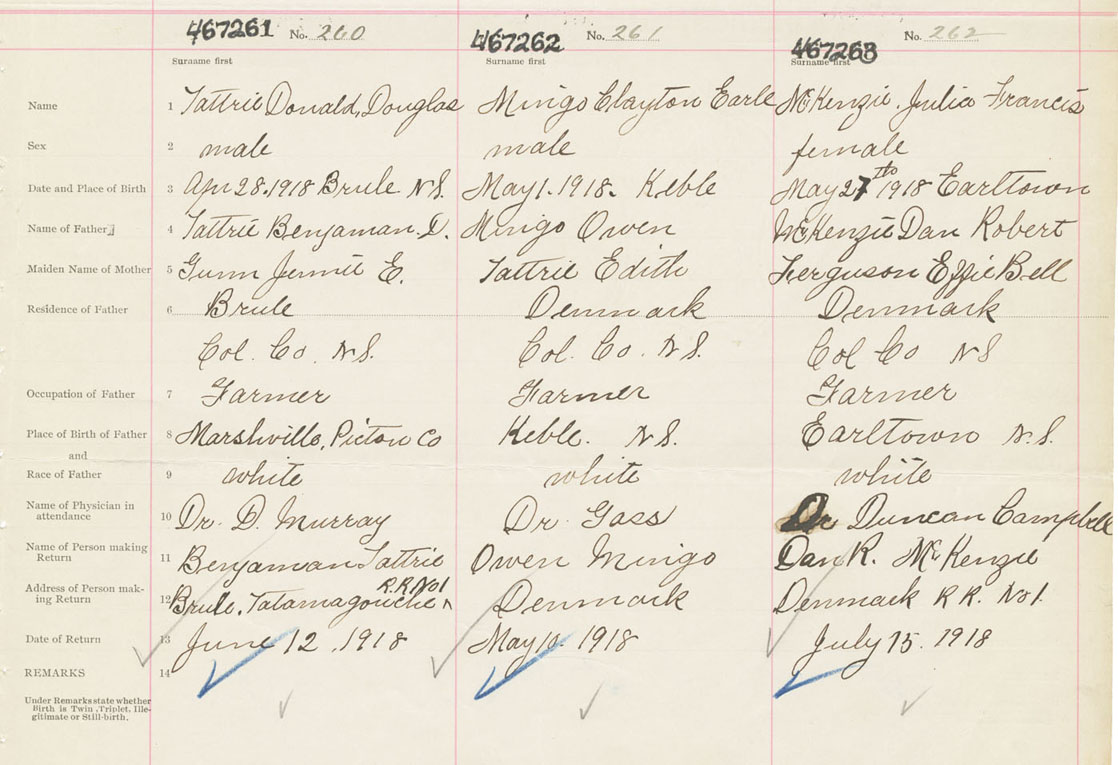 467261 No. 260 467262 No. 261 467263 No. 262
Surname first Surname first Surname first
Name 1 Tattrie Donald, Douglas Mingo Clayton Earle McKenzie, Julia Francis
Sex 2 male male female
Date and Place of Birth 3 Apr 28.1918 Brule N.S. May 1. 1918. Keble May 27th 1918 Earltown
Name of Father 4 Tattrie Benjaman. D. Mingo Owen McKenzie Dan Robert
Maiden Name of Mother 5 Gunn Jennie E. Tattrie Edith Ferguson Effie Bell
Residence of Father 6 Brule Denmark Denmark
Col. Co. N.S. Col. Co. N.S. Col Co NS
Occupation of Father 7 Farmer Farmer Farmer
Place of Birth of Father 8 Marshville, Picton Co Keble. N.S. Earltown N.S.
and
Race of Father 9 white white white
Name of Physician in
attendance 10 Dr. D. Murray Dr. Gass Dr Duncan Campbell
Name of Person making
Return 11 Benjaman Tattrie Owen Mingo Dan R. McKenzie
R.R. No 1
Address of Person mak-
ing Return 12 Brule, Tatamagouche Denmark Denmark R R. No 1.
Date of Return 13 June 12, 1918 May 10. 1918 July 15. 1918
REMARKS 14
Under Remarks state whether
Birth is Twin, Triplet, Ille-
gitimate or Still-birth.